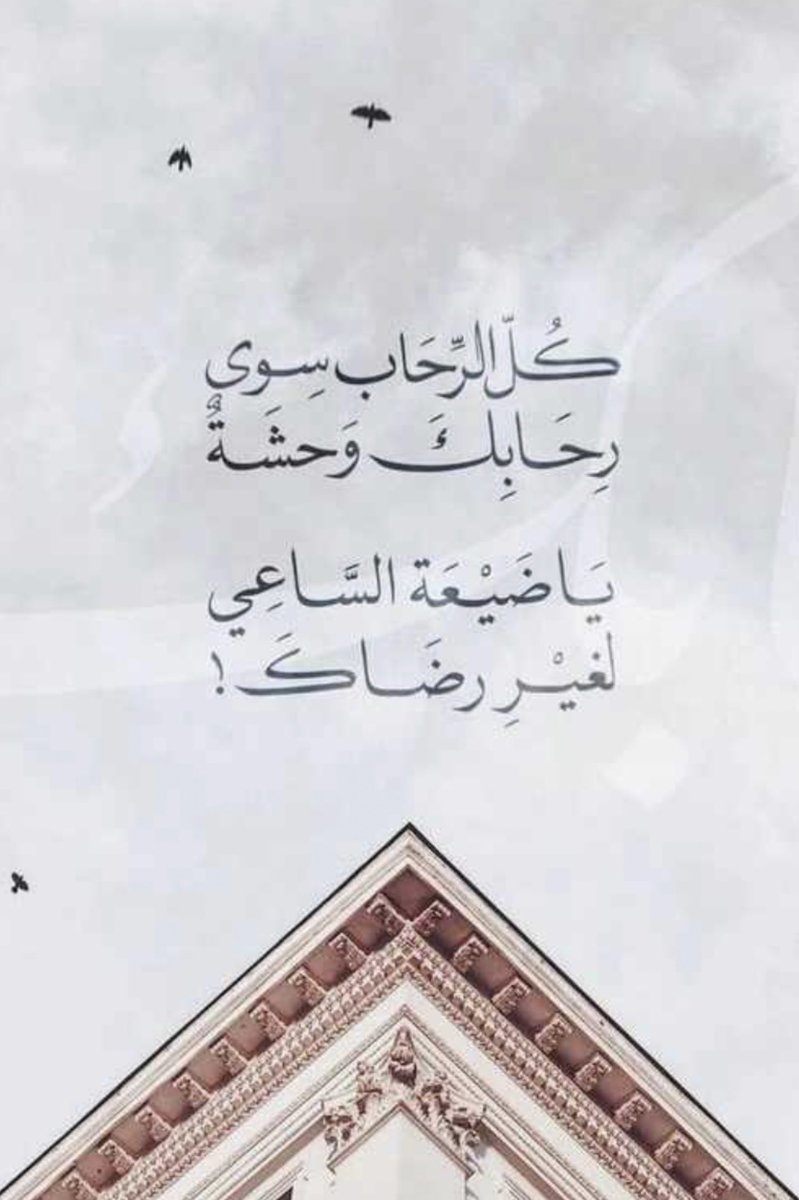 كُلّ الرِّحَاب سِوى
رِحَابِكَ وَحشَةٌ
يَا ضَيْعَة السَّاعِي
لغيْرِ رضَاكَ !